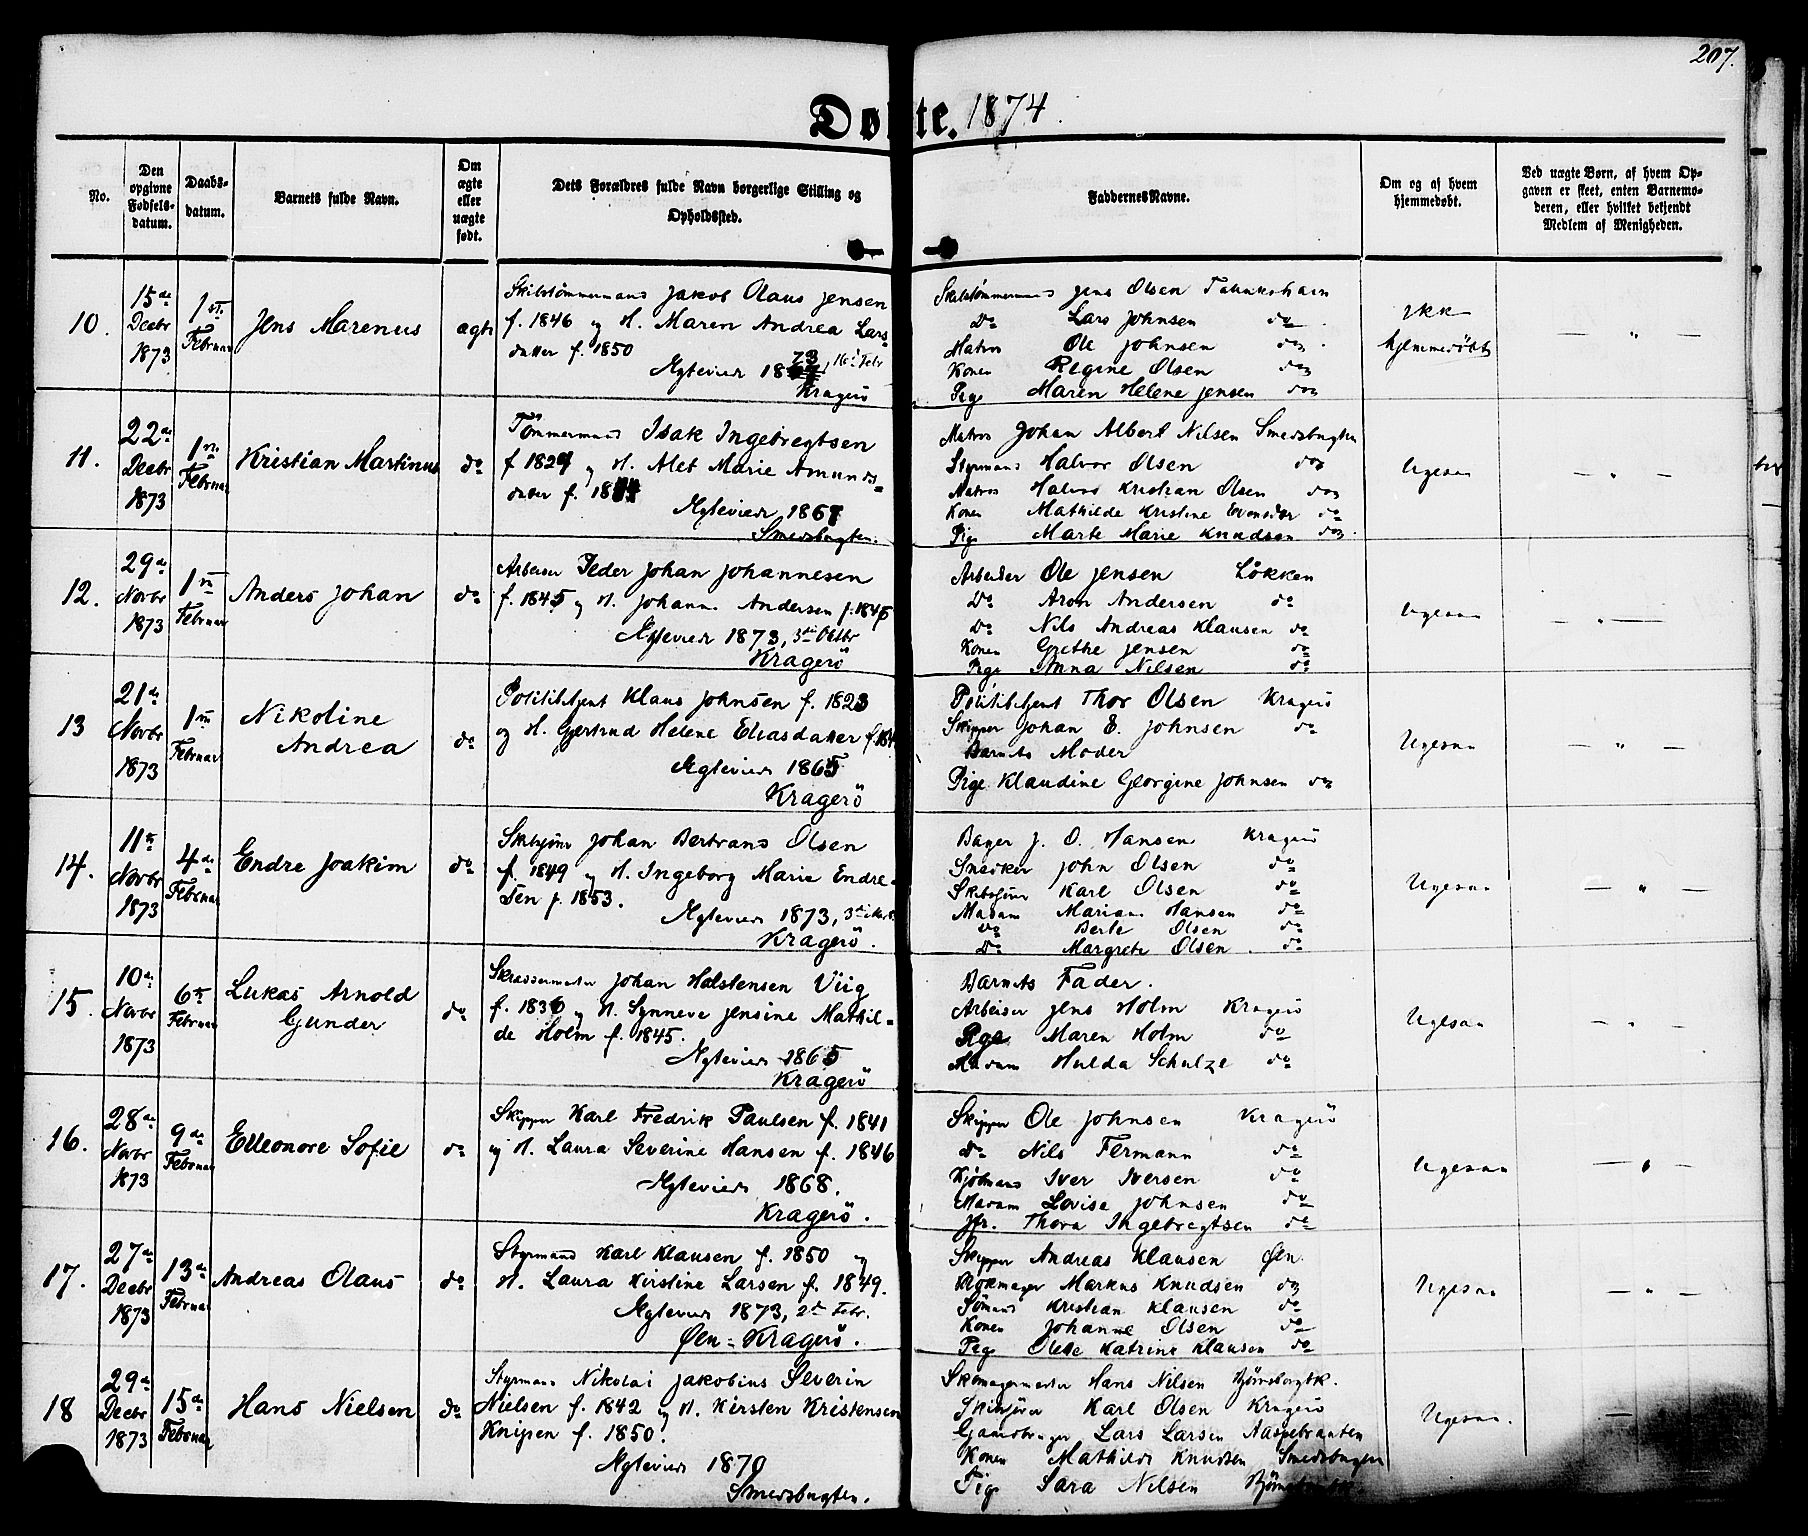 207.
Døbte. 1874.
No.
Den opgivne Fødselsdatum.
Daabsdatum.
Barnets fulde Navn.
Om ægte eller uægte født.
Dets Forældres fulde Navn borgerlige Stilling og Opholdssted.
Faddernes Navne.
Om og af hvem hjemmedøbt.
Ved uægte Børn, af hvem Opgaven er skeet, enten Barnemoderen, eller hvilket bekjendt Medlem af Menigheden.
10.
15de Decbr 1873
1ste Februar
Jens Marenus
ægte
Skibstømmermand Jakob Olaus Jensen
f. 1846 og H. Maren Andrea Lars
datter f. 1850
Ægteviede 1873, 16de Febr
Kragerö
Skibstømmermand Jens Olsen
Do Lars Johnsen do
Matros Ole Johnsen do
Konen Regine Olsen do
Pige Maren Helene Jensen do
ikke
hjemmedöbt
— " —
11.
22de Decbr 1873
1ste Februar
Kristian Martinus
do
Tömmermand Isak Ingebregtsen
f 1827 og H. Alet Marie Amunds=
datter f. 1844
Ægteviede 1868
Smedsbugten.
Matros Johan Albert Nilsen Smedsbugten
Styrmand Halvor Olsen do
Matros Halvor Kristian Olsen do
Konen Mathilde Kristine Evensen do
Pige Marte Marie Knudsen do.
Ligesaa
— " —
12.
29de Novbr 1873
1ste Februar
Anders Johan
do
Arbeider Peder Johan Johannesen
f. 1845 og H. Johanne Andersen f. 1845
Ægteviede 1873, 3die Octbr
Kragerö
Arbeider Ole Jensen Lökken
Do Aron Andersen do
Do Nils Andreas Klausen do
Konen Grethe Jensen do
Pige Anna Nilsen do
Ligesaa
— " —
13
21de Novbr 1873
1ste Februar
Nikoline
Andrea
do
Politibetjent Klaus Johnsen f. 1823
og H. Gjertrud Helene Eliasdatter f. 184
Ægteviede 1865
Kragerö
Politibetjent Thor Olsen Kragerö
Skipper Johan E. Johnsen do
Barnets Moder
Pige Klaudine Georgine Johnsen do
Ligesaa
— " —
14.
11te Novbr 1873
4de Februar
Endre Joakim
do
Johan Bertrand Olsen
f. 1849 og H. Ingeborg Marie Endre-
sen f. 1853.
Ægteviede 1873, 3die
Kragerö.
Bager J. O. Hansen Kragerö
Snedker John Olsen do
Karl Olsen do
Madam Mariane Hansen do
Do Berte Olsen do
Do Margrete Olsen. do
Ligesaa
— " —
15.
10de Novbr 1873
6te Februar
Lukas Arnold
Gunder
do
Skræddermester Johan Halstensen Viig
f. 1836 og H. Synneve Jensine Mathil=
de Holm f. 1845.
Ægteviede 1865
Kragerö
Barnets Fader.
Arbeider Jens Holm Kragerö
Pige Maren Holm do
Madam Hulda Schulze do
Ligesaa
— " —
16.
28de Novbr 1873
9de Februar
Elleonore Sofie
do
Skipper Karl Fredrik Paulsen f. 1841
og H. Laura Severine Hansen f. 1846
Ægteviede 1868.
Kragerö.
Skipper Ole Johnsen Kragerö
do Nils Fermann do
Kjöbmand Iver Iversen do
Madam Lovise Johnsen do
Jfr. Thora Ingebregtsen do
Ligesaa
— " —
17.
27de Decbr 1873
13de Februar
Andreas Olaus
do
Styrmand Karl Klausen f. 1850 og
H. Laura Kirstine Larsen f. 1849.
Ægteviede 1873, 2den Febr.
Øen = Kragerö.
Skipper Andreas Klausen Øen.
Markus Knudsen do
Sömand Kristian Klausen do
Konen Johanne Olsen do
Pige Olese Katrine Klausen do
Ligesaa
— " —
18
29de Decbr 1873
15de Februar
Hans Nielsen
do
Styrmand Nikolai Jakobius Severin
Nielsen f. 1842 og H. Kirsten Kristensen
Knipen f. 1850.
Ægteviede 1870
Smedsbugten.
Skomagermester Hans Nilsen
Karl Olsen Kragerö
Gaardbruger Lars Larsen
Konen Mathilde Knudsen Smedsbugten
Pige Sara Nilsen
Ligesaa.
—